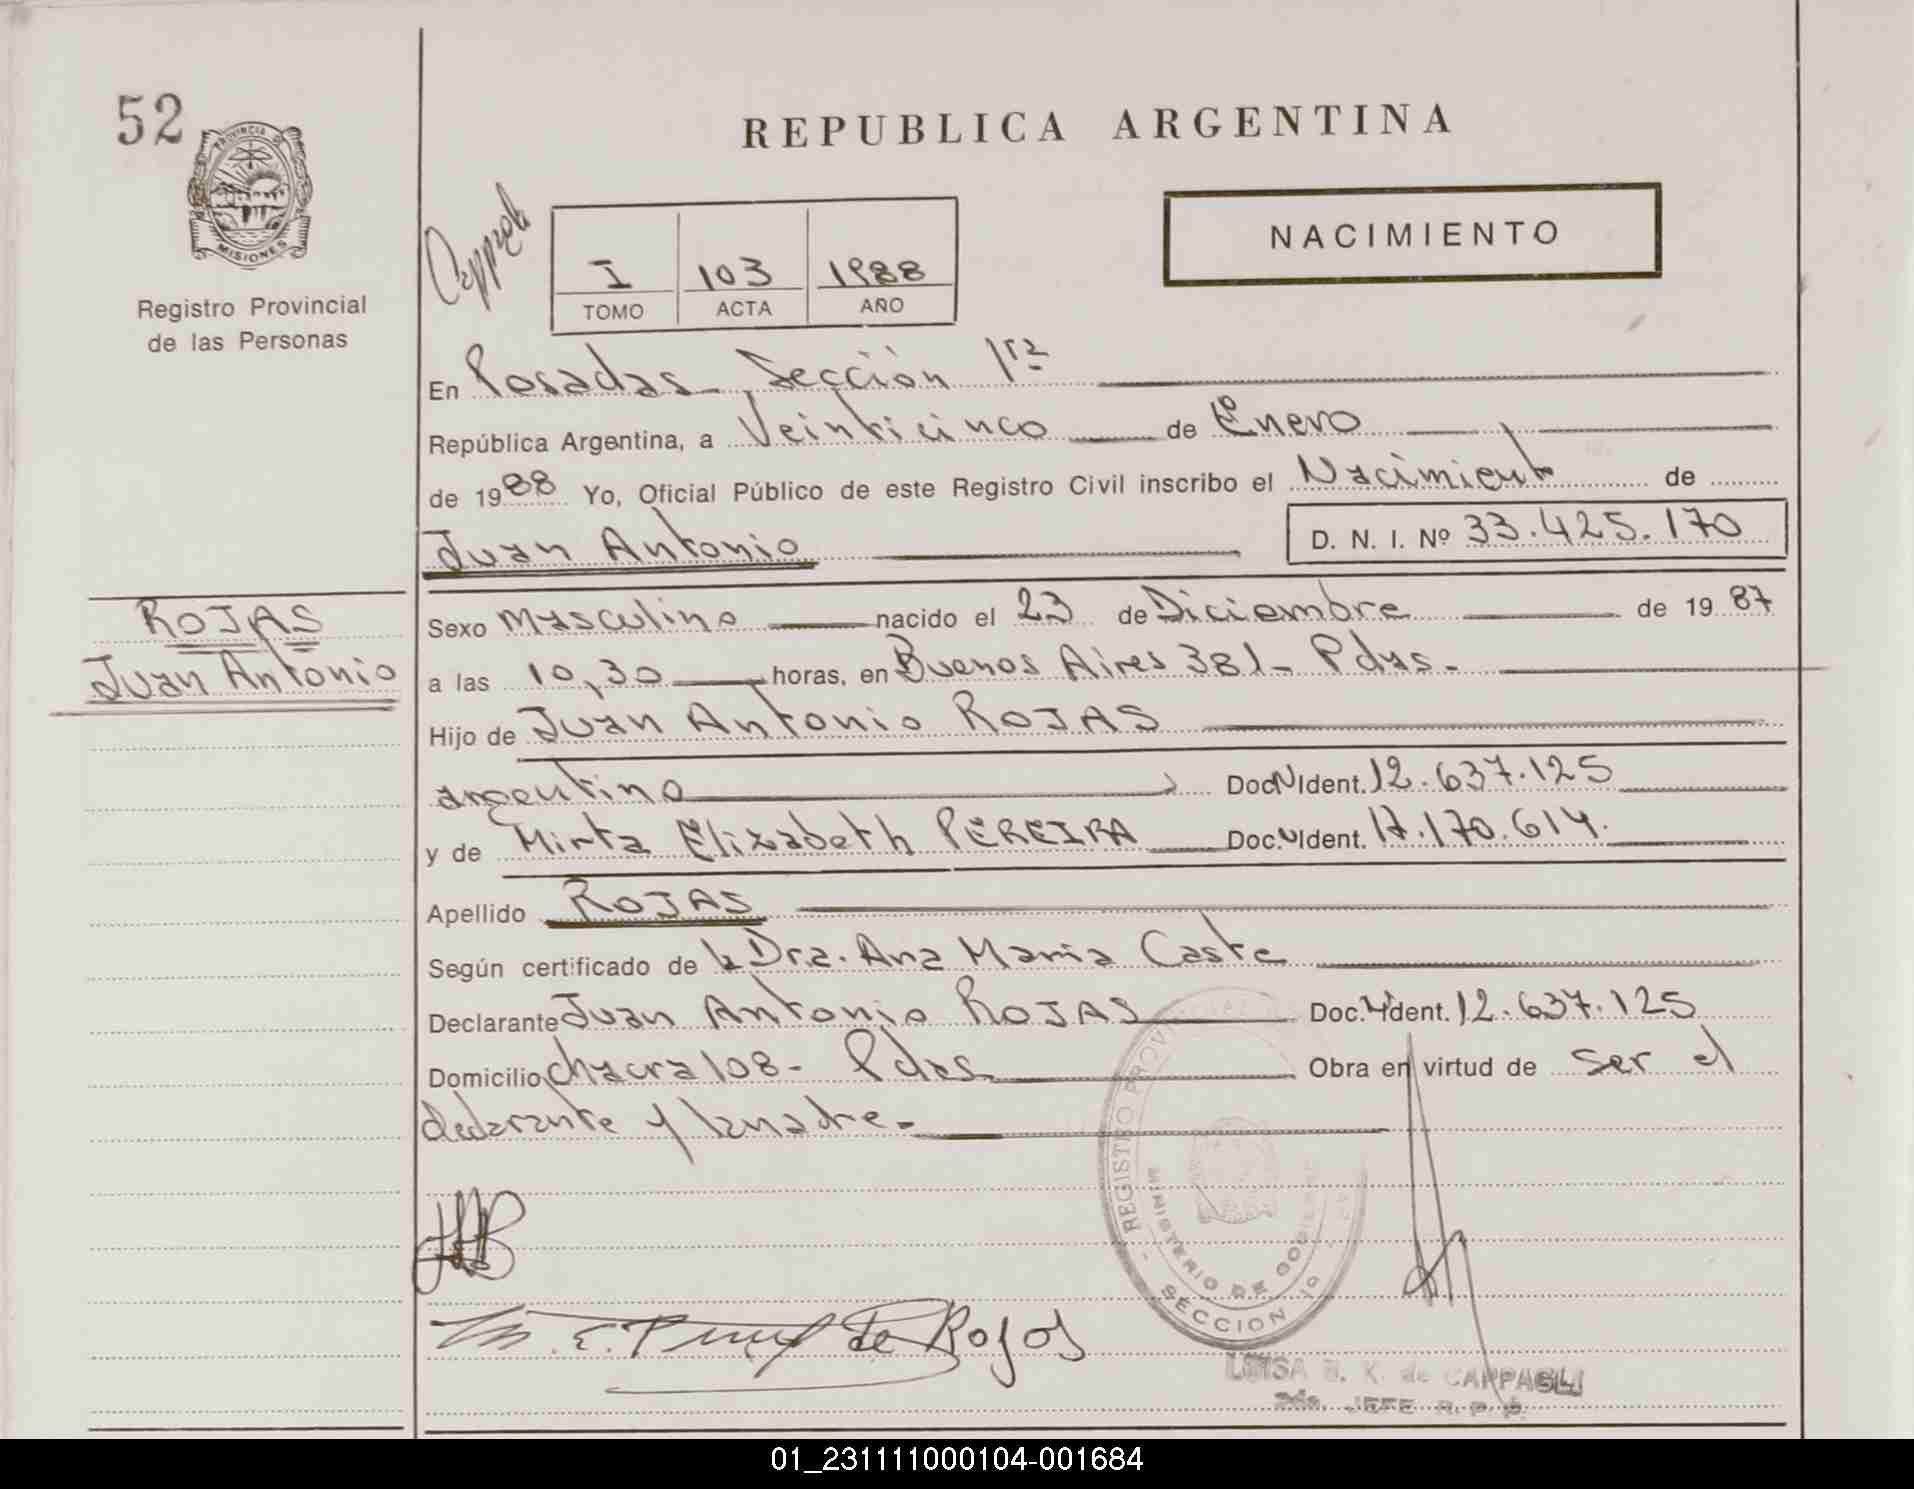 52
PROVINCIA DE
MISIONES
Registro Provincial
de las Personas
REPUBLICA ARGENTINA
NACIMIENTO
I 103 1988
TOMO ACTA AÑO
En Posadas - Sección 1ra
República Argentina, a Veinticinco de Enero
de 1988 Yo, Oficial Público de este Registro Civil inscribo el Nacimiento de
Juan Antonio D. N. I. Nº 33.425.170
ROJAS
Juan Antonio
Sexo Masculino nacido el 23 de Diciembre de 1987
a las 10,30 horas, en Buenos Aires 381 - Pdas.
Hijo de Juan Antonio ROJAS
argentino, Doc.N Ident. 12.637.125
y de Mirta Elizabeth PEREIRA Doc.N Ident. 17.170.614.
Apellido ROJAS
Según certificado de la Dra. Ana Maria Caste
Declarante Juan Antonio ROJAS Doc. Ident. 12.637.125
Domicilio chacra 108 - Pdas. Obra en virtud de ser el
declarante y la madre.
REGISTRO PROVINCIAL
MINISTERIO DE GOBIERNO
SECCION 1a
M. E. P de Rojas
LUISA B. K. de CAPPAGLI
2da. JEFE R. P. P.
01_231111000104-001684